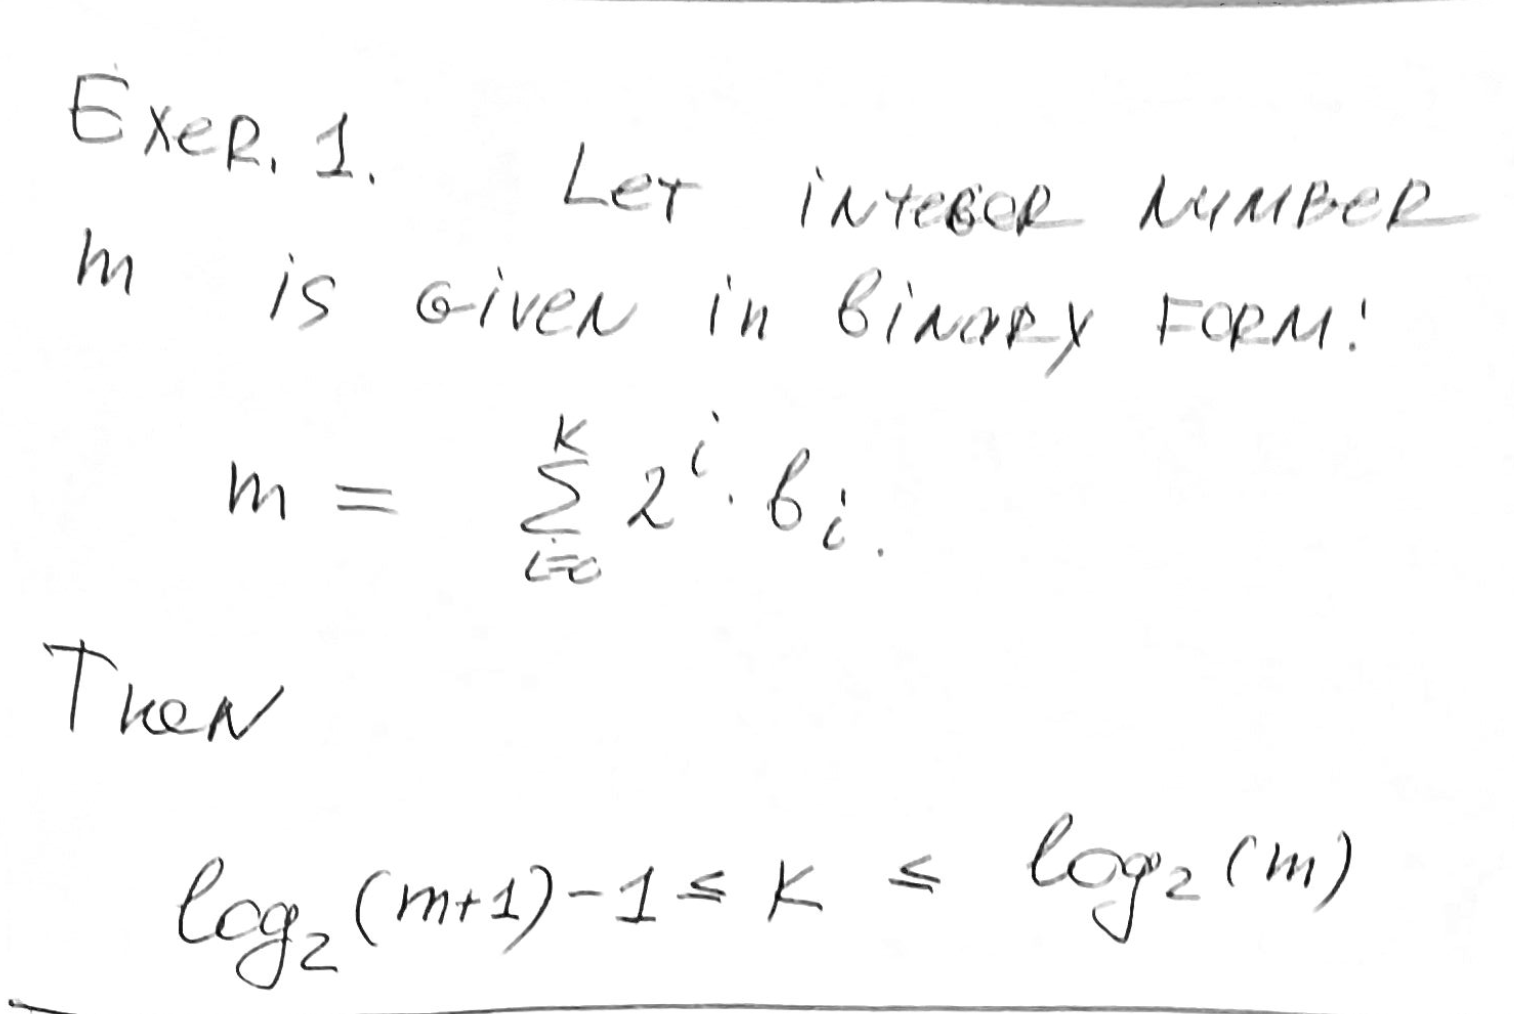 Exer. 1. Let integer number
m is given in binary form:
m = \sum_{i=0}^{K} 2^i \cdot b_i.
Then
log_2(m+1)-1 ≤ K ≤ log_2(m)